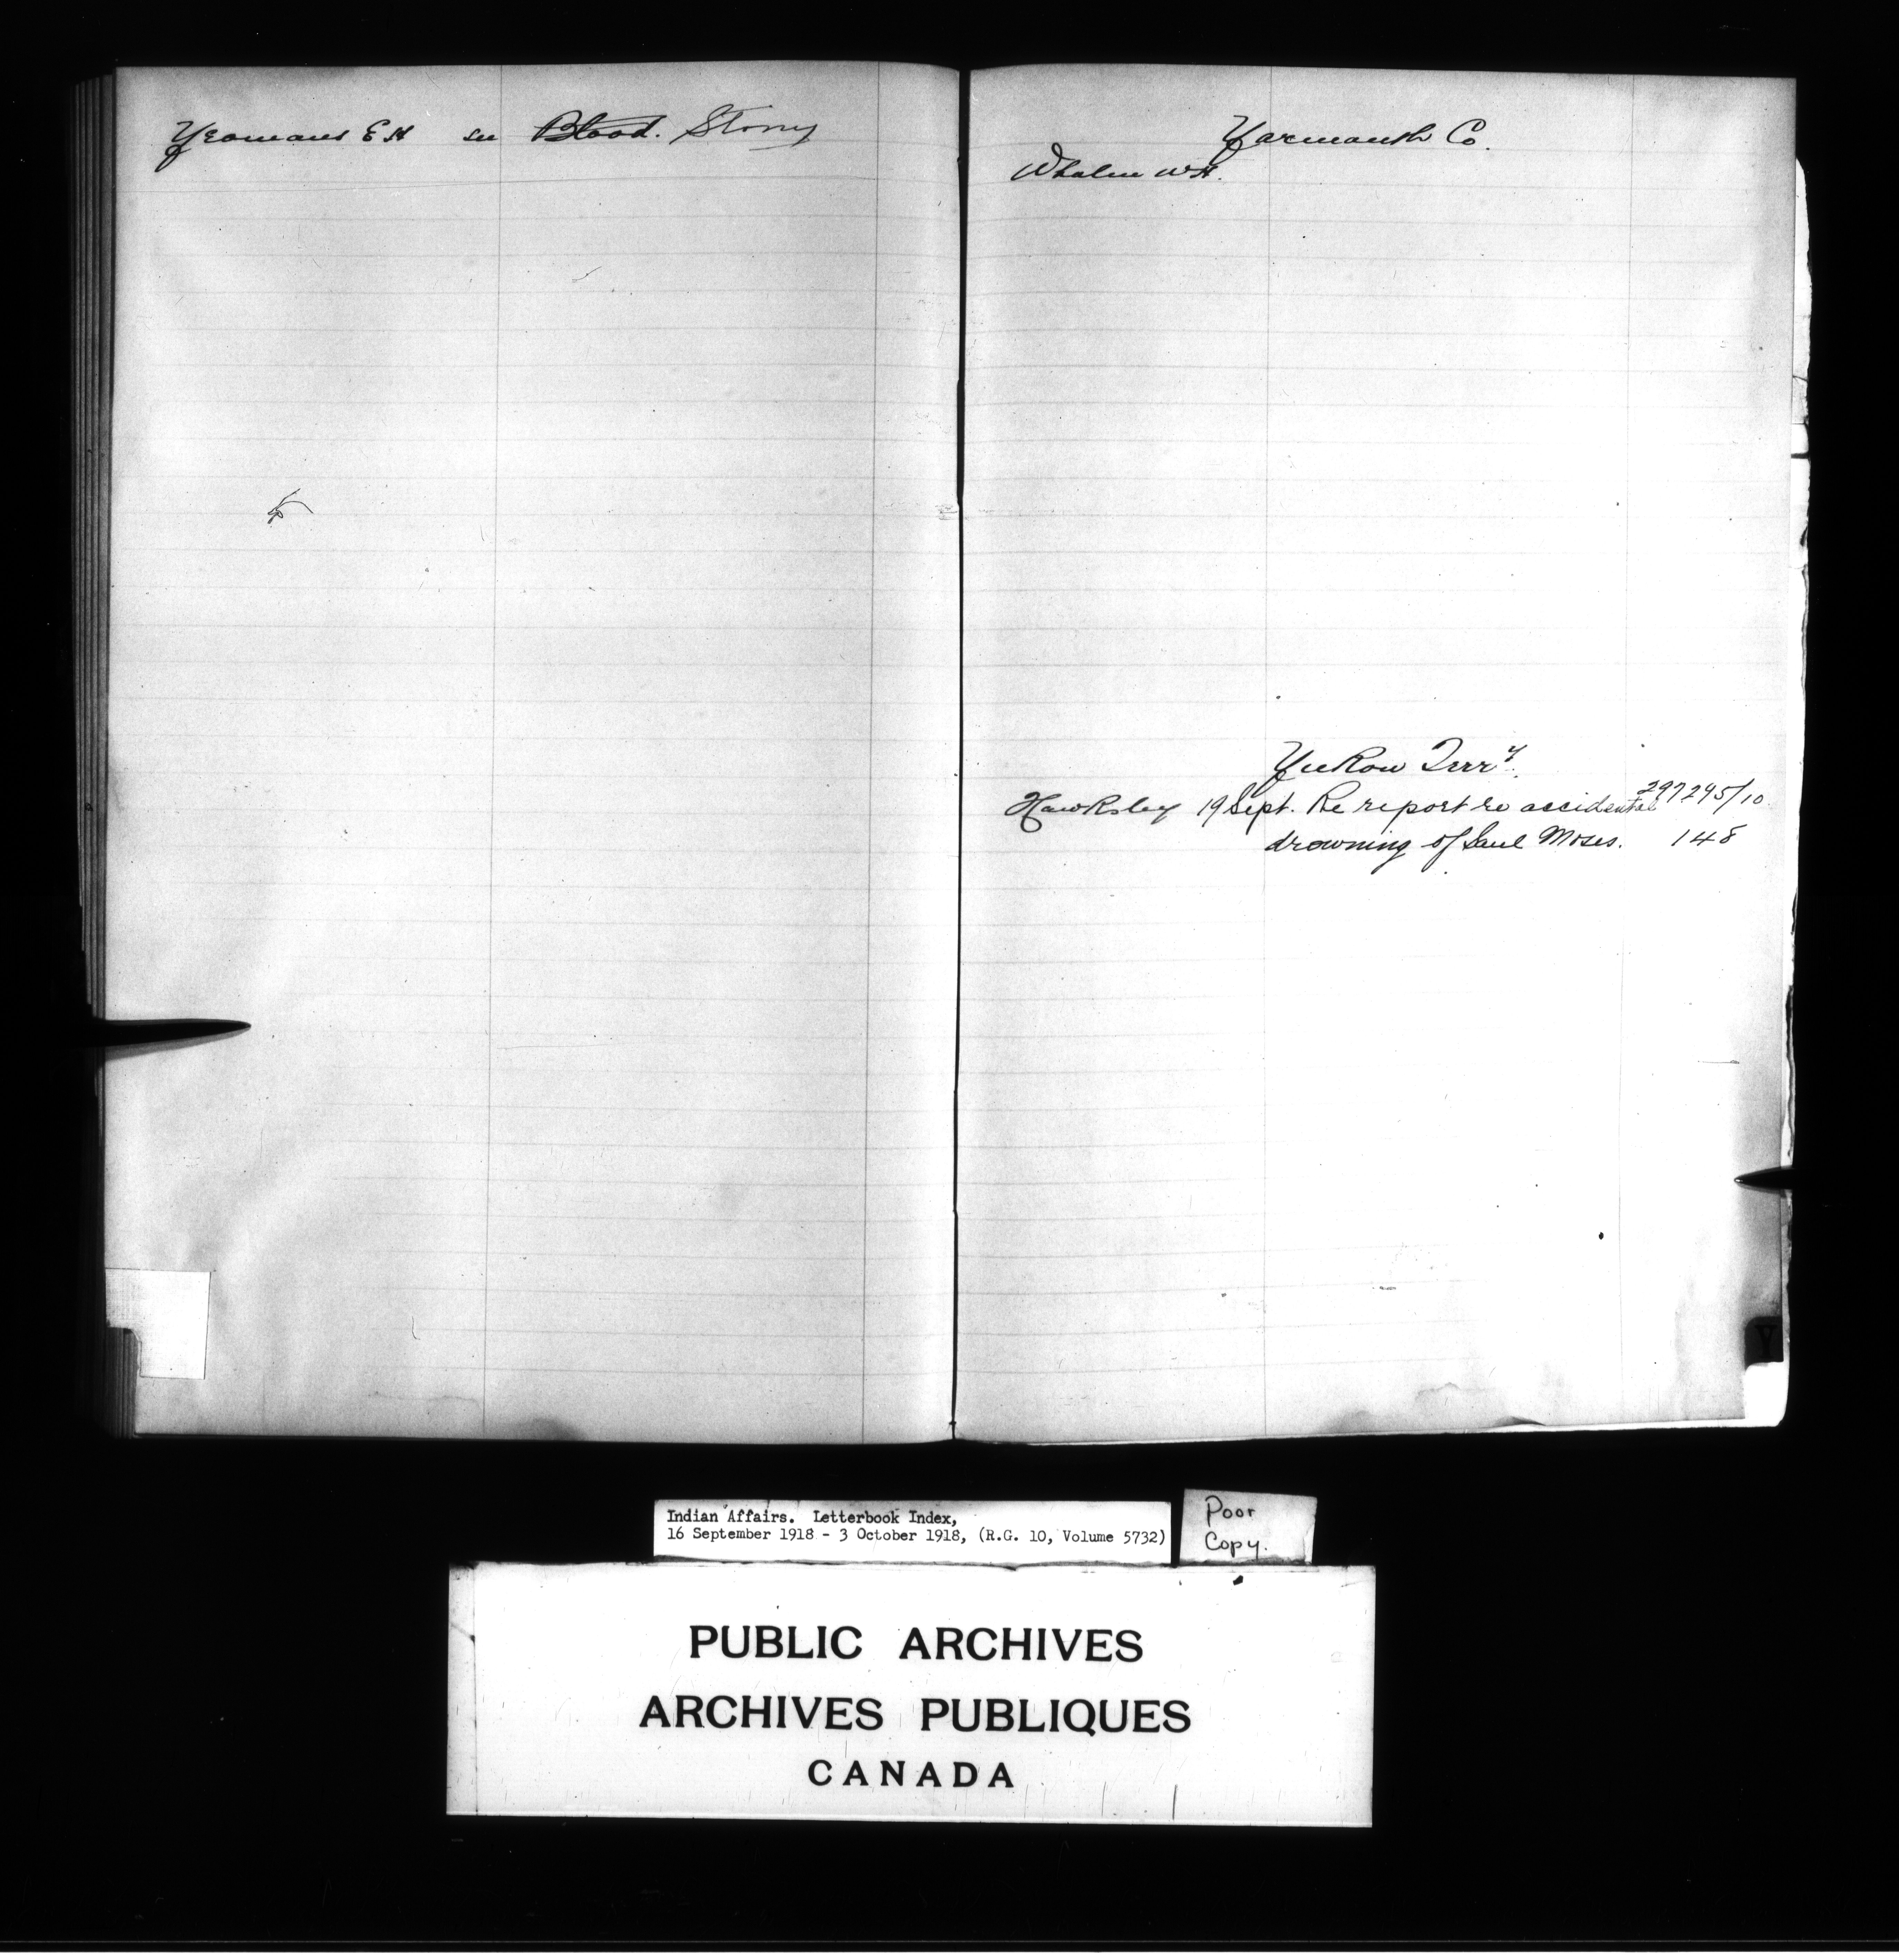 Yeomans E H see Blood. Stony
Yarmouth Co.
Whalen W H.
Yukon Terry.
Hawksley 19 Sept. Re report re accidental 297295/10
drowning of Saul Moses. 148
Y
Indian Affairs. Letterbook Index,
16 September 1918 - 3 October 1918, (R.G. 10, Volume 5732)
Poor
Copy.
PUBLIC ARCHIVES
ARCHIVES PUBLIQUES
CANADA